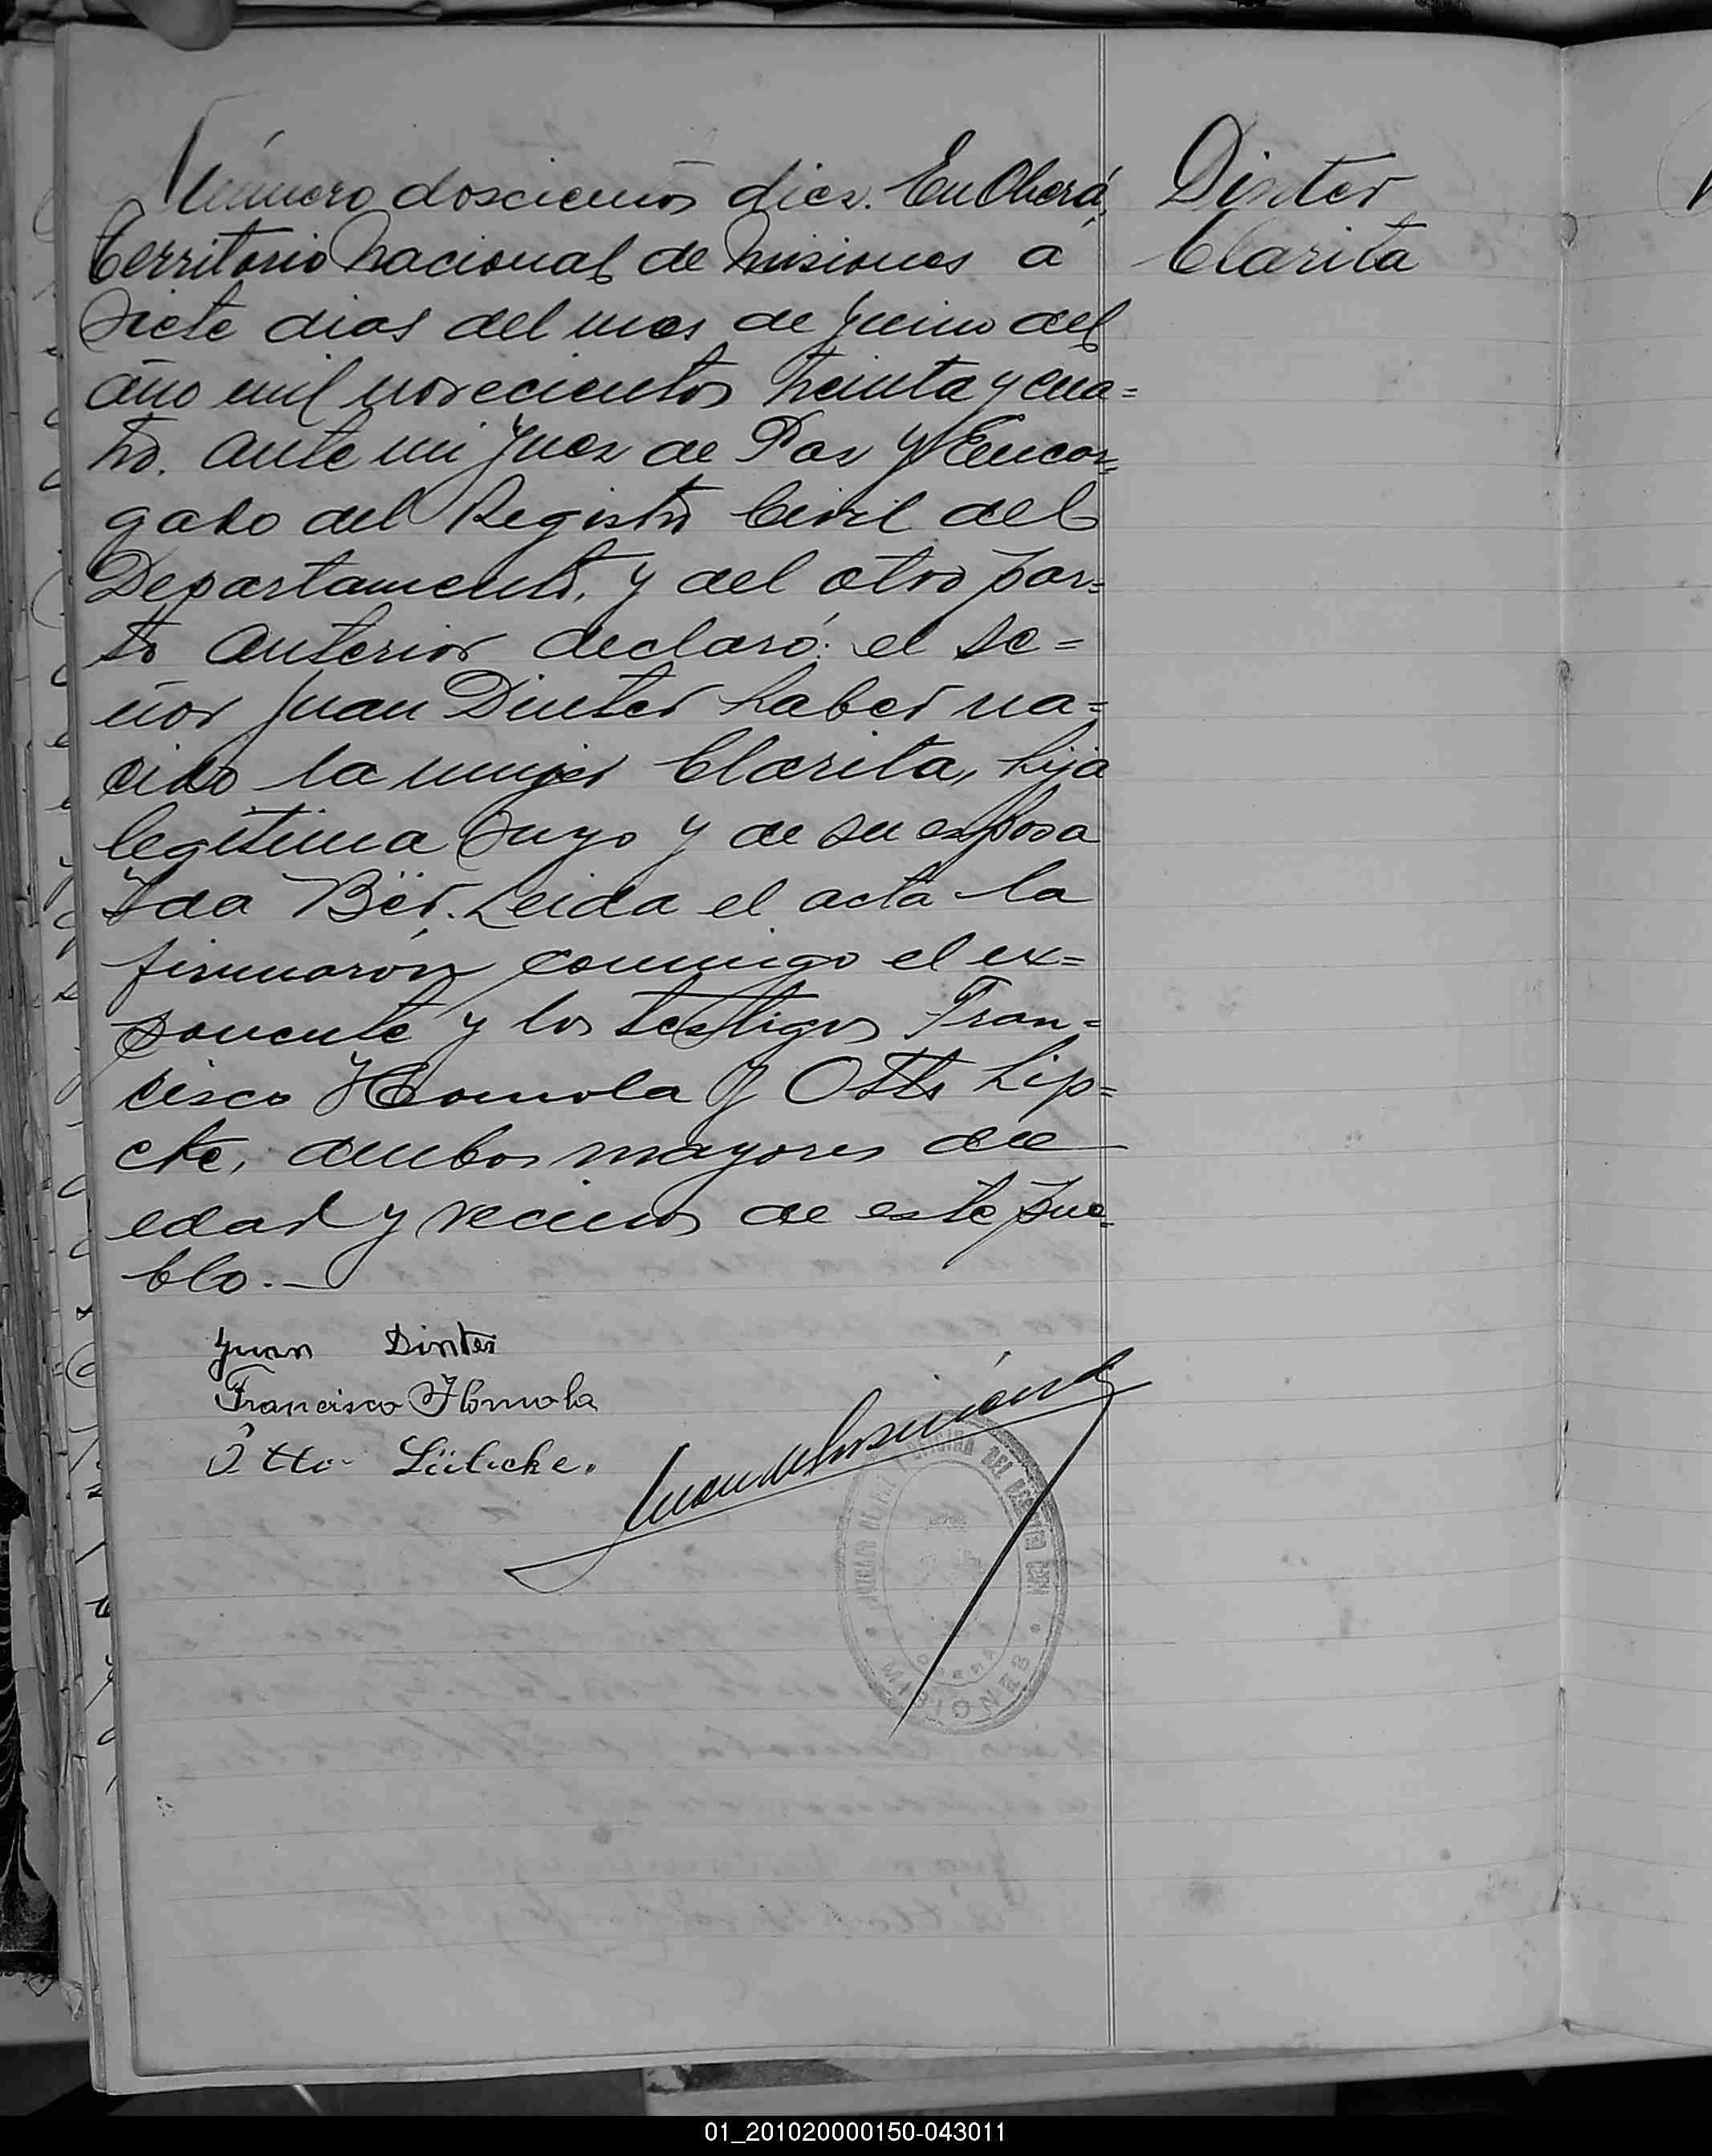 Número doscientos diez. En Oberá,
Territorio Nacional de Misiones a
siete dias del mes de Junio del
año mil novecientos treinta y cua=
tro. ante mi Juez de Paz y Encar=
gado del Registro Civil del
Departamento, y del otro par=
to anterior declaró: el se=
ñor Juan Dinter haber na=
cido la mujer Clarita, hija
legitima suyo y de su esposa
Ida Bër. Leida el acta la
firmarón conmigo el ex=
ponente y los testigos Fran=
cisco Homola y Otto Lip=
cke, ambos mayores de
edad y vecinos de este pue=
blo.—
Dinter
Clarita
Juan Dinter
Francisco Homola
Otto
DEL REGISTRO CIVIL
OBERA
MISIONES
01_201020000150-043011